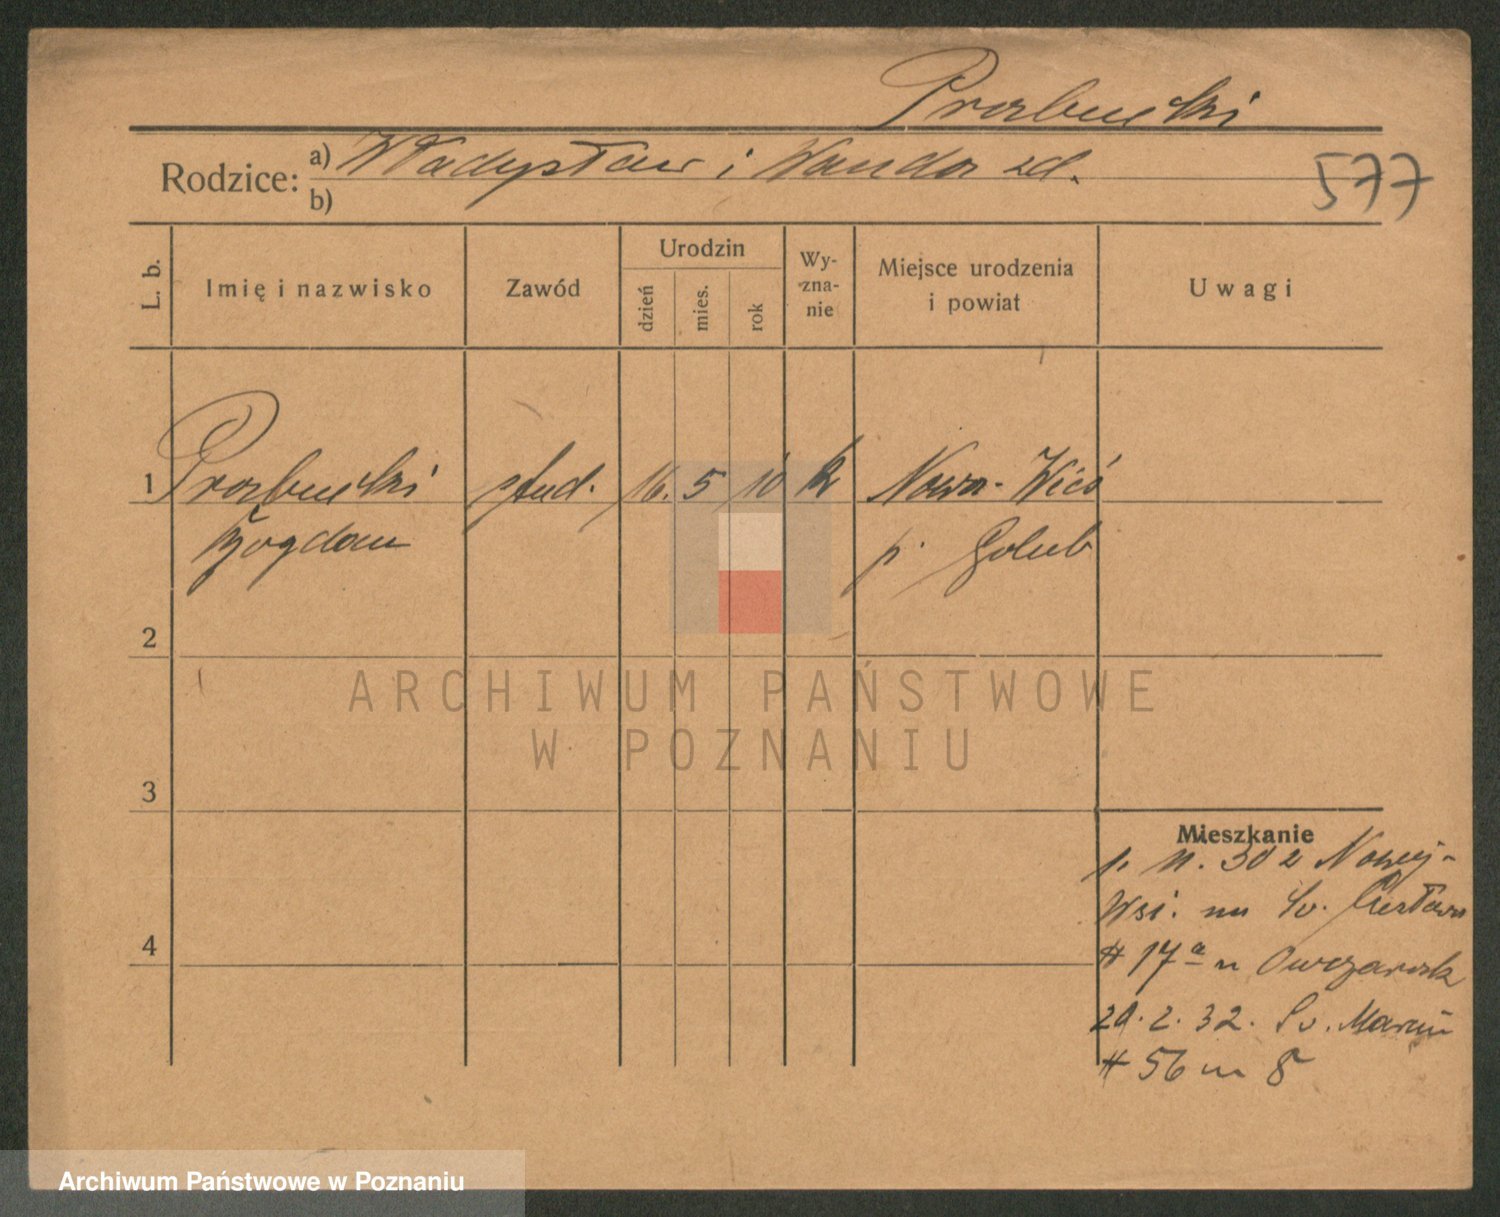 Prozbuski
Rodzice: a) Władysław i Wanda zd.
b)
577
L. b.
Imię i nazwisko
Zawód
Urodzin
dzień
mies.
rok
Wy-
zna-
nie
Miejsce urodzenia
i powiat
Uwagi
1 stud. 16. 5 10 k Nowa-Wieś
Bogdan p. Golub
2
3
4
Mieszkanie
30 z Nowej-
Wsi. na Św.
# 17a u Owczarek
2. 32. Św. Marcin
# 56 m 8
ARCHIWUM PAŃSTWOWE
W POZNANIU
Archiwum Państwowe w Poznaniu